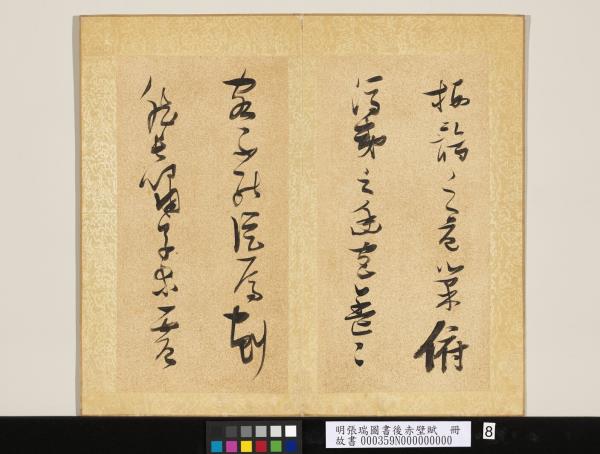 栖鶻之危巢俯
馮夷之幽宮蓋二
客不能從焉劃
然長嘯草木震
明張瑞圖書後赤壁賦 冊
故書 000359N000000000
8